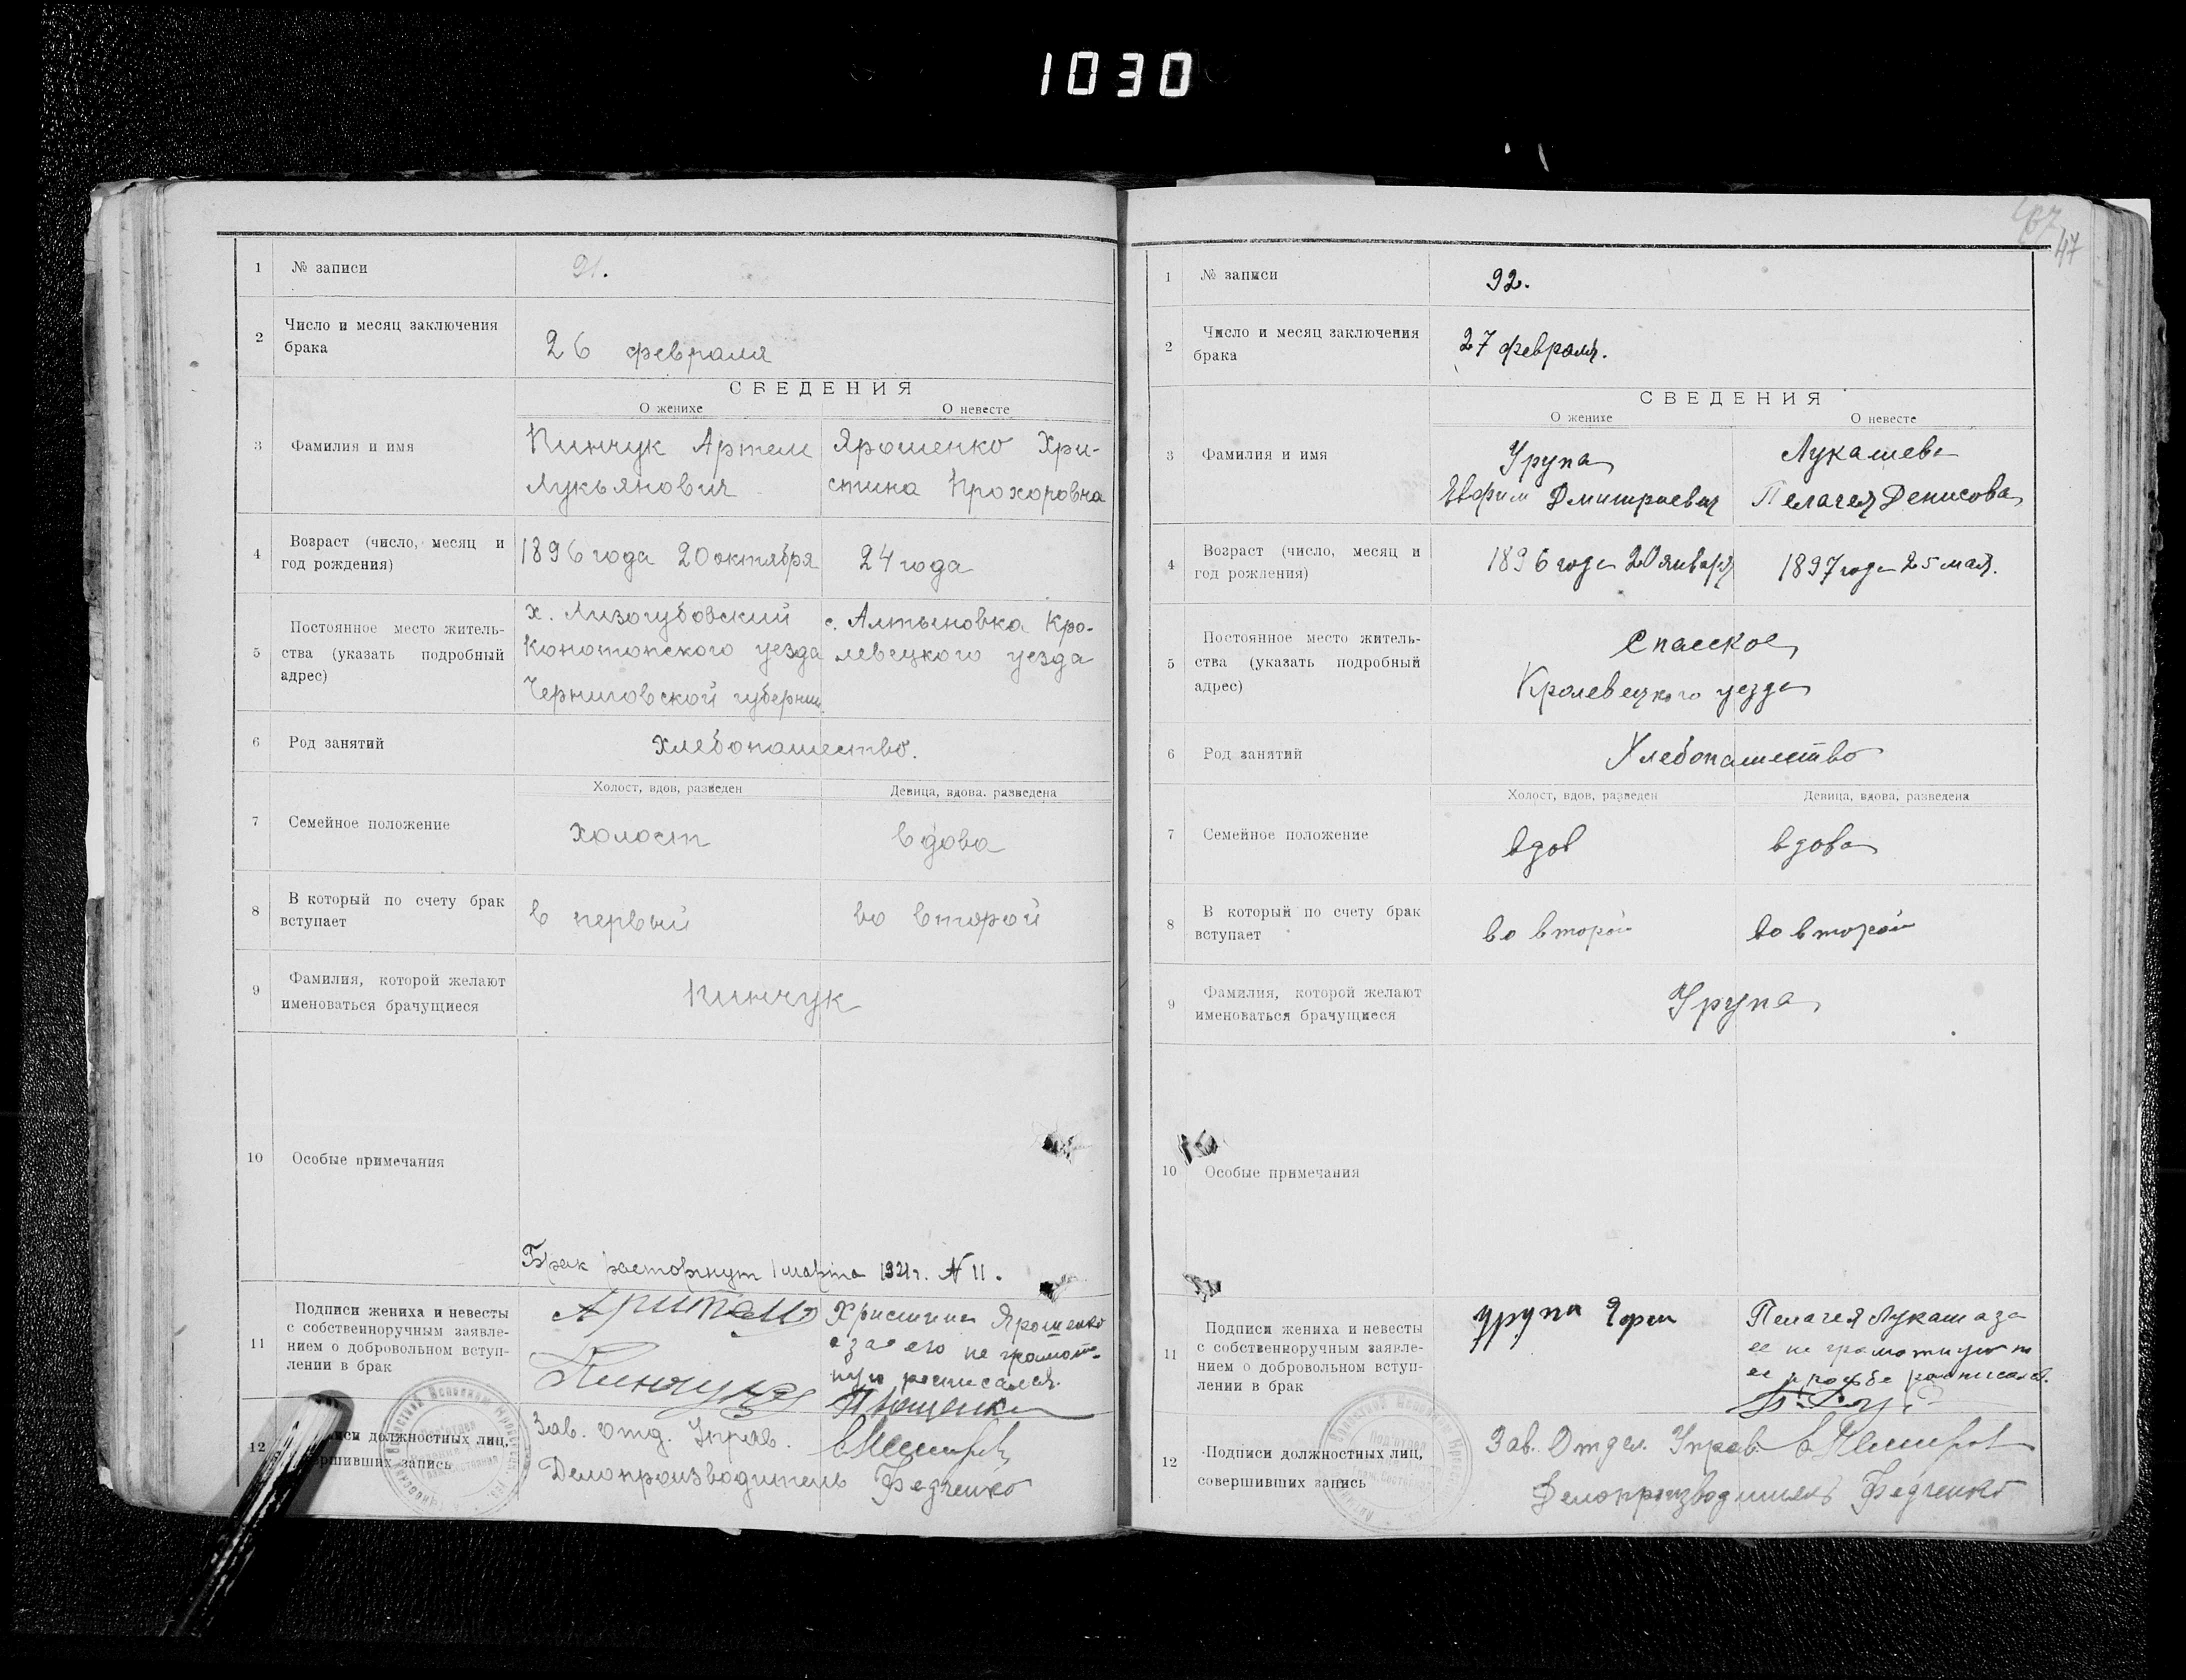 1030
47
1 № записи 91.
2 Число и месяц заключения
брака
26 февраля
СВЕДЕНИЯ
О женихе О невесте
3 Фамилия и имя
Кинчук Артем
Лукьянович
Ярошенко Хри-
стина Прохоровна
4 Возраст (число, месяц и
год рождения)
1896 года 20 октября
24 года
5 Постоянное место житель-
ства (указать подробный
адрес)
х. Лизогубовский
Конотопского уезда
Черниговской губернии.
с. Алтыновка Кро-
левецкого уезда
6 Род занятий
Хлебопашество.
Холост, вдов, разведен Девица, вдова, разведена
7 Семейное положение
Холост
вдова
8 В который по счету брак
вступает
в первый
во второй
9 Фамилия, которой желают
именоваться брачущиеся
Кинчук
10 Особые примечания
Брак расторгнут 1 марта 1921 г. № 11.
11 Подписи жениха и невесты
с собственноручным заявле-
нием о добровольном вступ-
лении в брак
Христина Ярошенко
а за ею не грамот-
ную росписался.
12 должностных лиц,
запись
Зав. отд. Управ.
Делопроизводитель Федченко
1 № записи 92.
2 Число и месяц заключения
брака
27 февраля.
СВЕДЕНИЯ
О женихе О невесте
3 Фамилия и имя
Урупа
Евфим Дмитриевич
Лукашева
Пелагея Денисова
4 Возраст (число, месяц и
год рождения)
1896 года 20 января
1897 года 25 мая.
5 Постоянное место житель-
ства (указать подробный
адрес)
Спасское,
Кролевецкого уезда
6 Род занятий
Хлебопашество
Холост, вдов, разведен Девица, вдова, разведена
7 Семейное положение
вдов
вдова
8 В который по счету брак
вступает
во второй
во второй
9 Фамилия, которой желают
именоваться брачущиеся
Урупа
10 Особые примечания
11 Подписи жениха и невесты
с собственноручным заявле-
нием о добровольном вступ-
лении в брак
Урупа
Пелагея Лукаш а за
ее не грамотную по
ее прозьбе росписался.
12 Подписи должностных лиц,
совершивших запись
Зав. Отдел. Управ.
Делопроизводитель Федченко